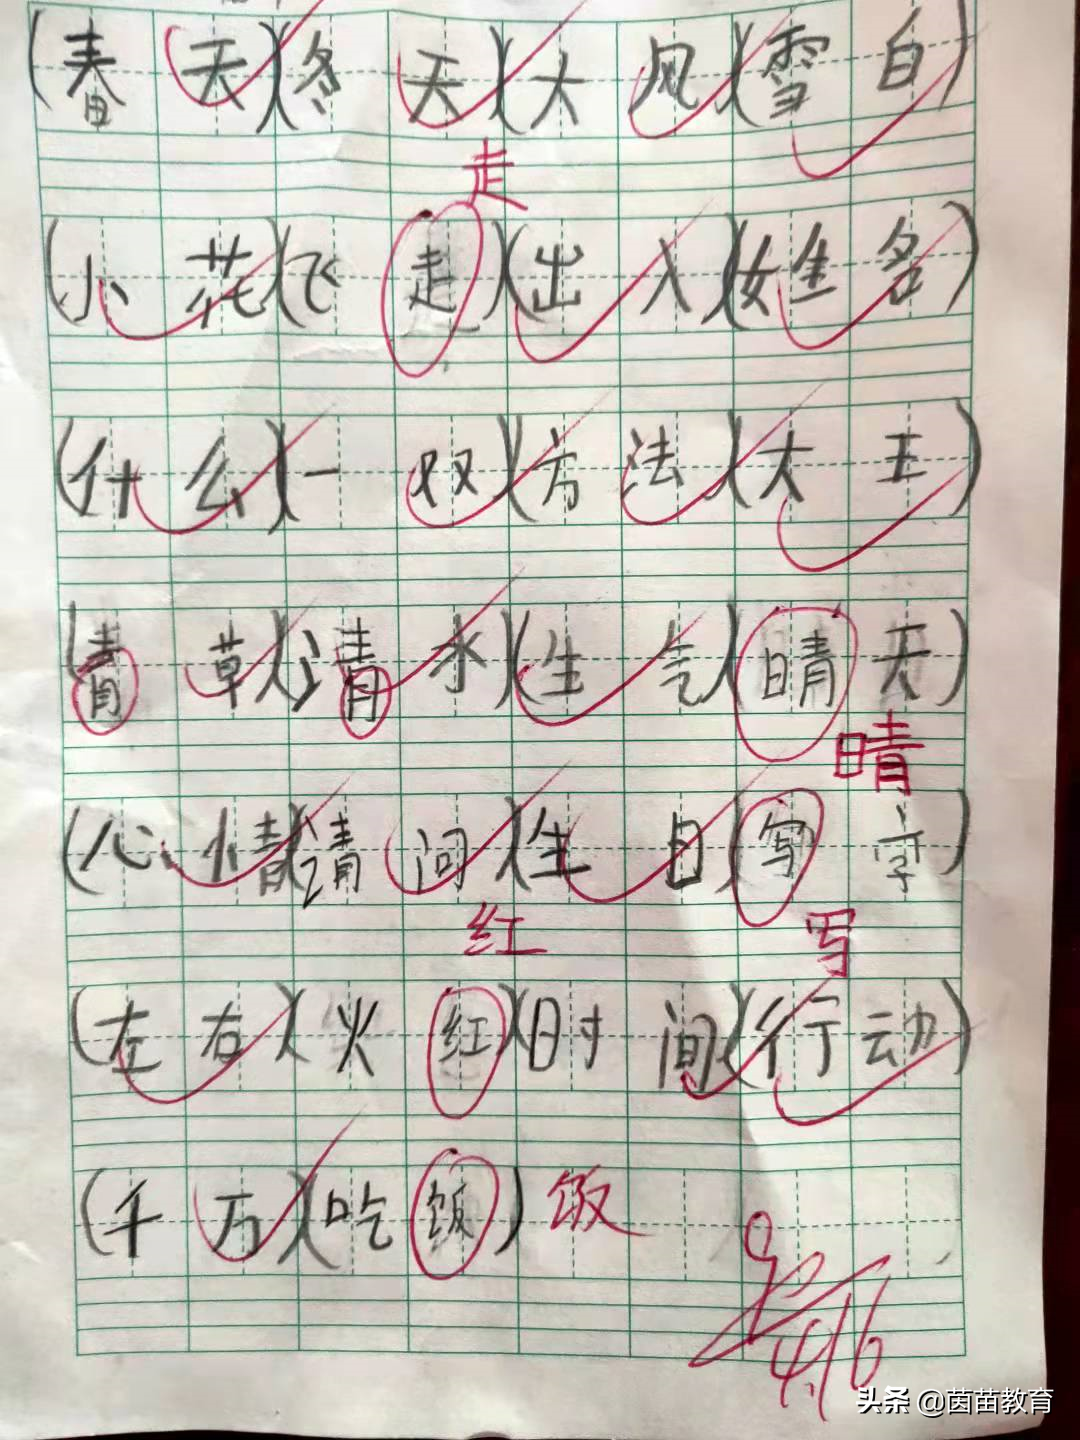 (春天)(冬天)(大风)(雪白)
走
(小花)(飞走)(出入)(姓名)
(什么)(一双)(方法)(大王)
(青草)(清水)(生气)(晴天)
晴
(心情)(请问)(生日)(写字)
红 写
(左右)(火红)(时间)(行动)
(千万)(吃饭) 饭
4.16
头条 @茵苗教育